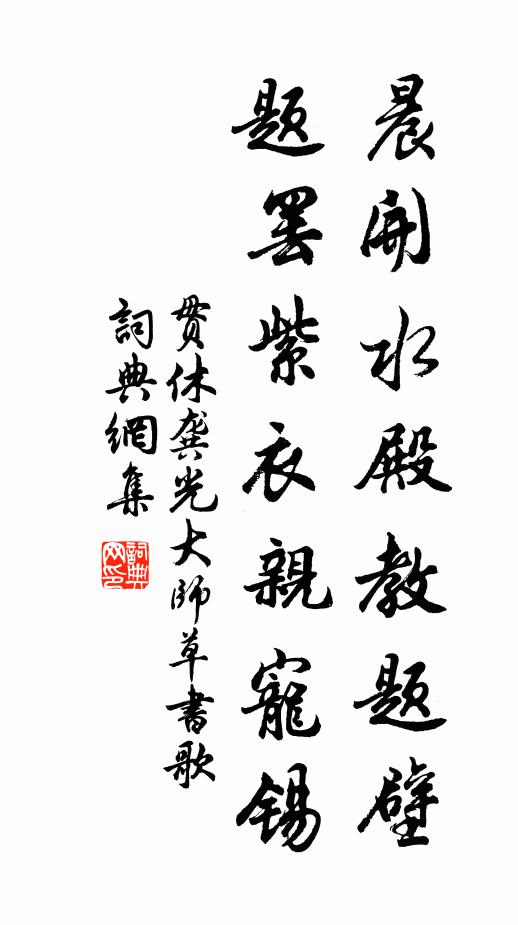 晨開水殿教題壁
題罷紫衣親寵錫
貫休龔光大師草書歌
詞典網集
詞典
网印